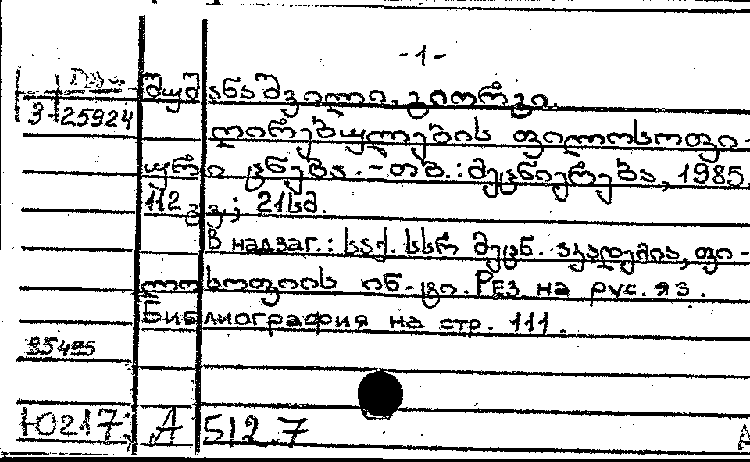 -1-
შუშანაშვილი, გიორგი.
З-25924
ღირებულების ფილოსოფი-
ური ცნება. - თბ.: მეცნიერება, 1985.
112 გვ.; 21სმ.
В надзаг.: საქ. სსრ მეცნ. აკადემია, ფი-
ლოსოფიის ინ-ტი. Рез. на рус. яз.
Библиография на стр. 111.
85495
Ю217; А 512.7